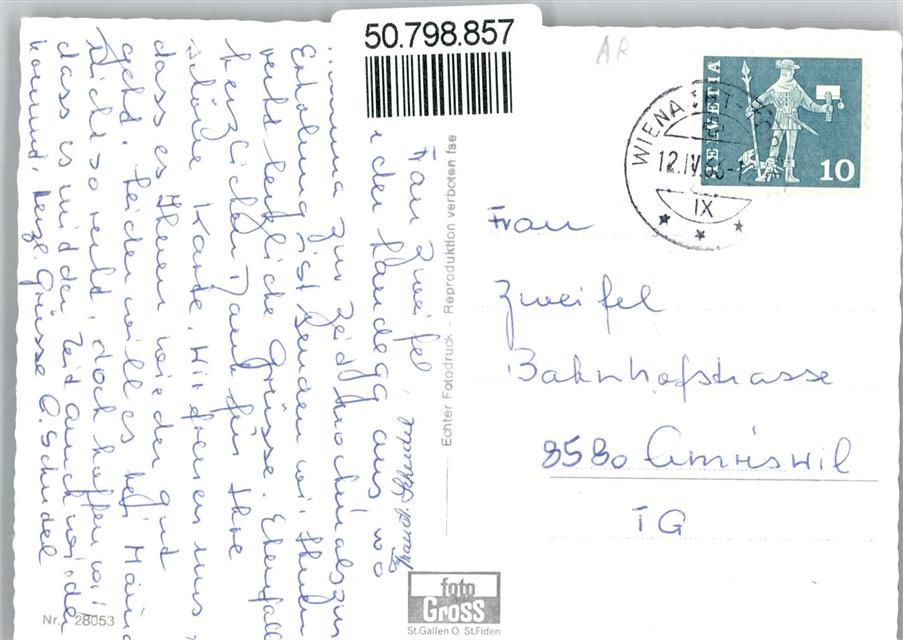 50.798.857
AR
HELVETIA
10
WIENACHT
12.IV.
IX
Frau Zweifel,
der Landegg aus, wo
Mama zur Zeit nochmals zur
Erholung ist senden wir Ihnen
recht herzliche Grüsse. Ebenfalls
herzlichen Dank für Ihre
schöne Karte. Wir freuen uns,
dass es Ihnen wieder gut
geht. Leider will es bei Mama
nicht so recht, doch hoffen wir
dass es mit der Zeit auch wieder
kommt. Herzl. Grüsse A. Schudel
Echter Fotodruck - Reproduktion verboten fse
Frau
Zweifel
Bahnhofstrasse
8580 Amriswil
TG
foto
Gross
St.Gallen O St.Fiden
Nr. 28053